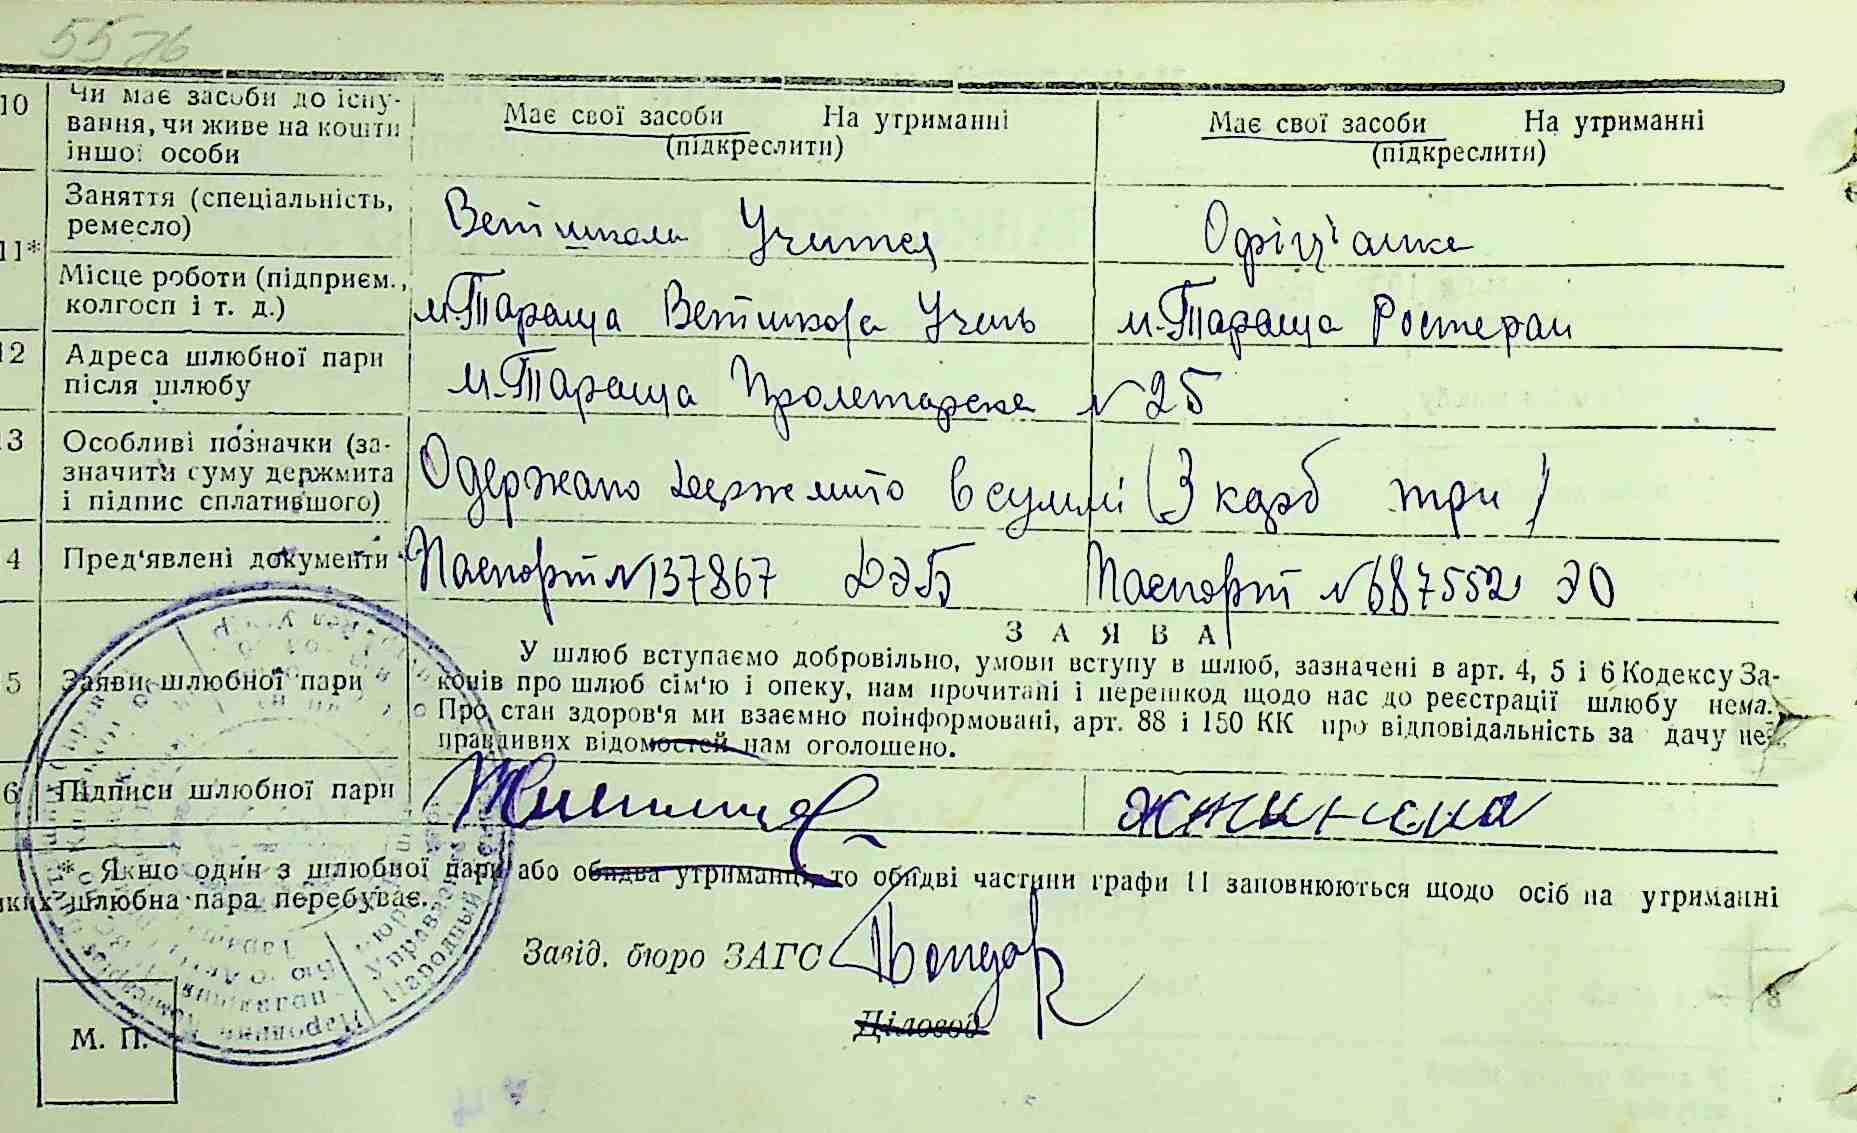 5576
10 Чи має засоби до існу-
вання, чи живе на кошти
іншої особи
Має свої засоби На утриманні
(підкреслити)
Має свої засоби На утриманні
(підкреслити)
11* Заняття (спеціальність,
ремесло)
Ветшкола Учитель
Офіц'анка
Місце роботи (підприєм.,
колгосп і т. д.)
м. Тараща Ветшкола Учень
м. Тараща Ресторан
12 Адреса шлюбної пари
після шлюбу
м. Тараща Пролетарська №25
3 Особливі позначки (за-
значити суму держмита
і підпис сплатившого)
Одержано держмито в суммі (3 карб три)
4 Пред'явлені документи
Паспорт №137867
Паспорт №687552 ЭО
З А Я В А
5 Заяви шлюбної пари
У шлюб вступаємо добровільно, умови вступу в шлюб, зазначені в арт. 4, 5 і 6 Кодексу За-
конів про шлюб сім'ю і опеку, нам прочитані і перешкод щодо нас до реєстрації шлюбу нема.
Про стан здоров'я ми взаємно поінформовані, арт. 88 і 150 КК про відповідальність за дачу не-
правдивих відомостей нам оголошено.
6 Підписи шлюбної пари
* Якщо один з шлюбної пари або обидва утриманці, то обидві частини графи 11 заповнюються щодо осіб на утриманні
яких шлюбна пара перебуває.
Завід. бюро ЗАГС Бондар
Діловод
М. П.